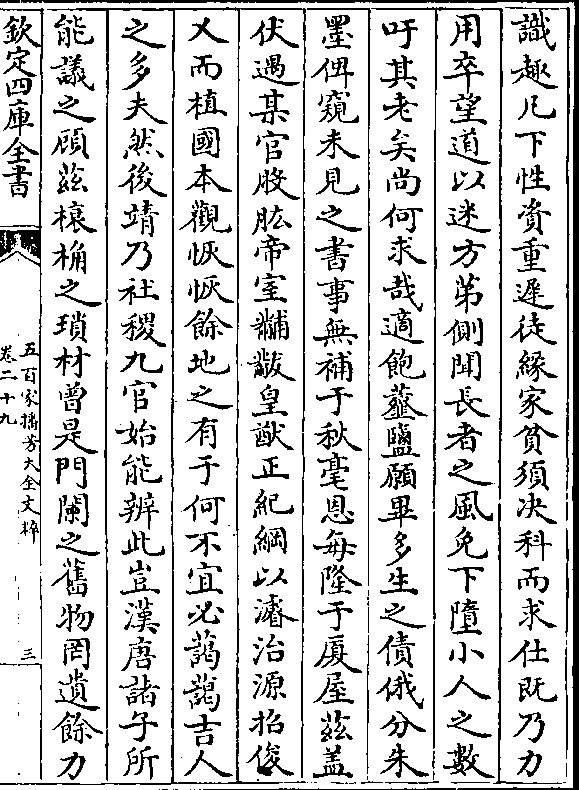 識趣凡下性資重遲徒緣家貧須決科而求仕既乃力
用卒望道以迷方苐側聞長者之風免下墮小人之數
吁其老矣尚何求哉適飽虀鹽願畢多生之債俄分朱
墨俾窺未見之書事無補于秋毫恩每隆于廈屋茲盖
伏遇某官股肱帝室黼黻皇猷正紀綱以濬治源招俊
乂而植國本觀恢恢餘地之有于何不宜必藹藹吉人
之多夫然後靖乃社稷九官始能辨此豈漢唐諸子所
能議之顧茲榱桷之瑣材曾是門闌之舊物罔遺餘力
欽定四庫全書
五百家播芳大全文粹
卷二十九
三